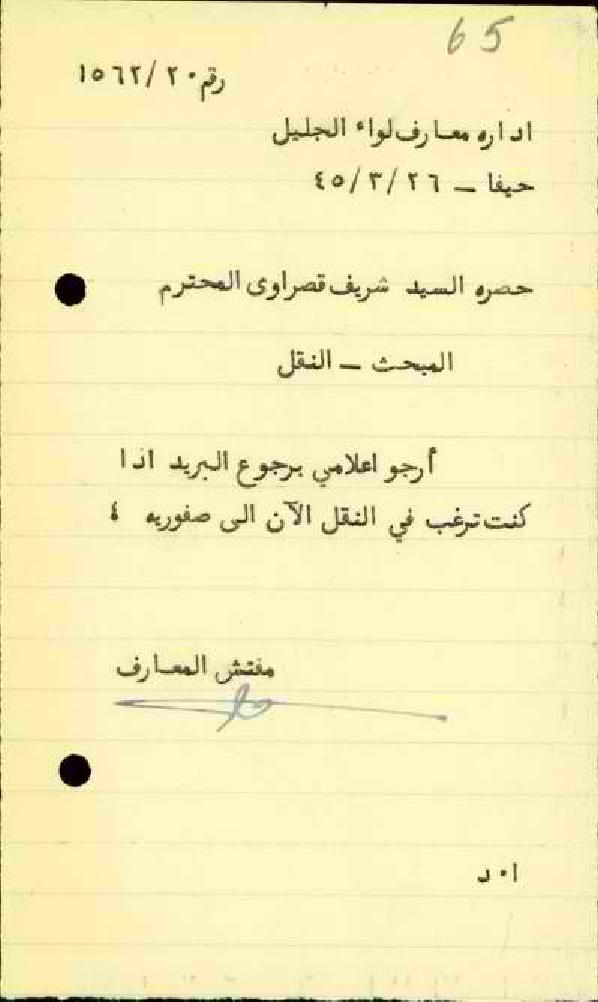 65
رقم ٢٠/١٥٦٢
اداره معارف لواء الجليل
حيفا ــ ٤٥/٣/٢٦
حضره السيد شريف قصراوى المحترم
المبحث ــ النقل
أرجو اعلامي برجوع البريد اذا
كنت ترغب في النقل الآن الى صفوريه
مفتش المعارف
ا٠د